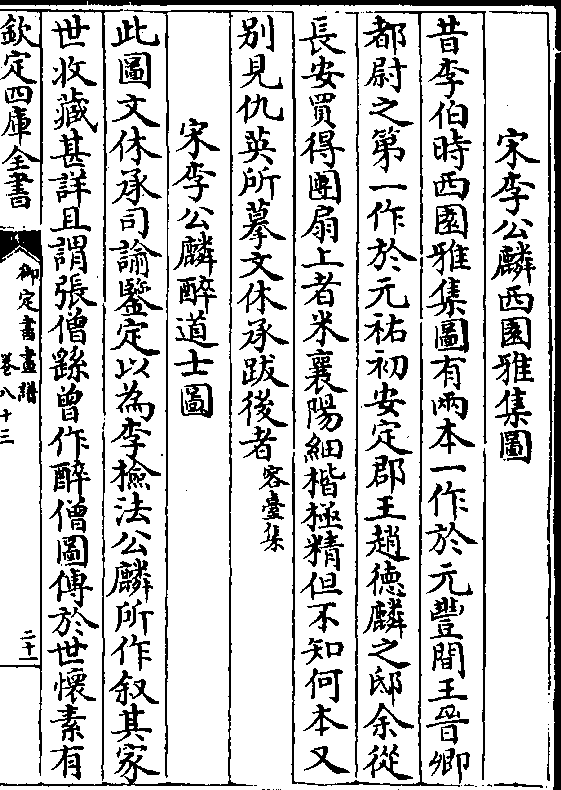 宋李公麟西園雅集圖
昔李伯時西園雅集圖有兩本一作於元豐間王晉卿
都尉之第一作於元祐初安定郡王趙德麟之邸余從
長安買得團扇上者米襄陽細楷極精但不知何本又
別見仇英所摹文休承跋後者容臺集
宋李公麟醉道士圖
此圖文休承司諭鑒定以為李撿法公麟所作叙其家
世收藏甚詳且謂張僧繇曾作醉僧圖傳於世懷素有
欽定四庫全書
御定書畫譜
卷八十三
二十一